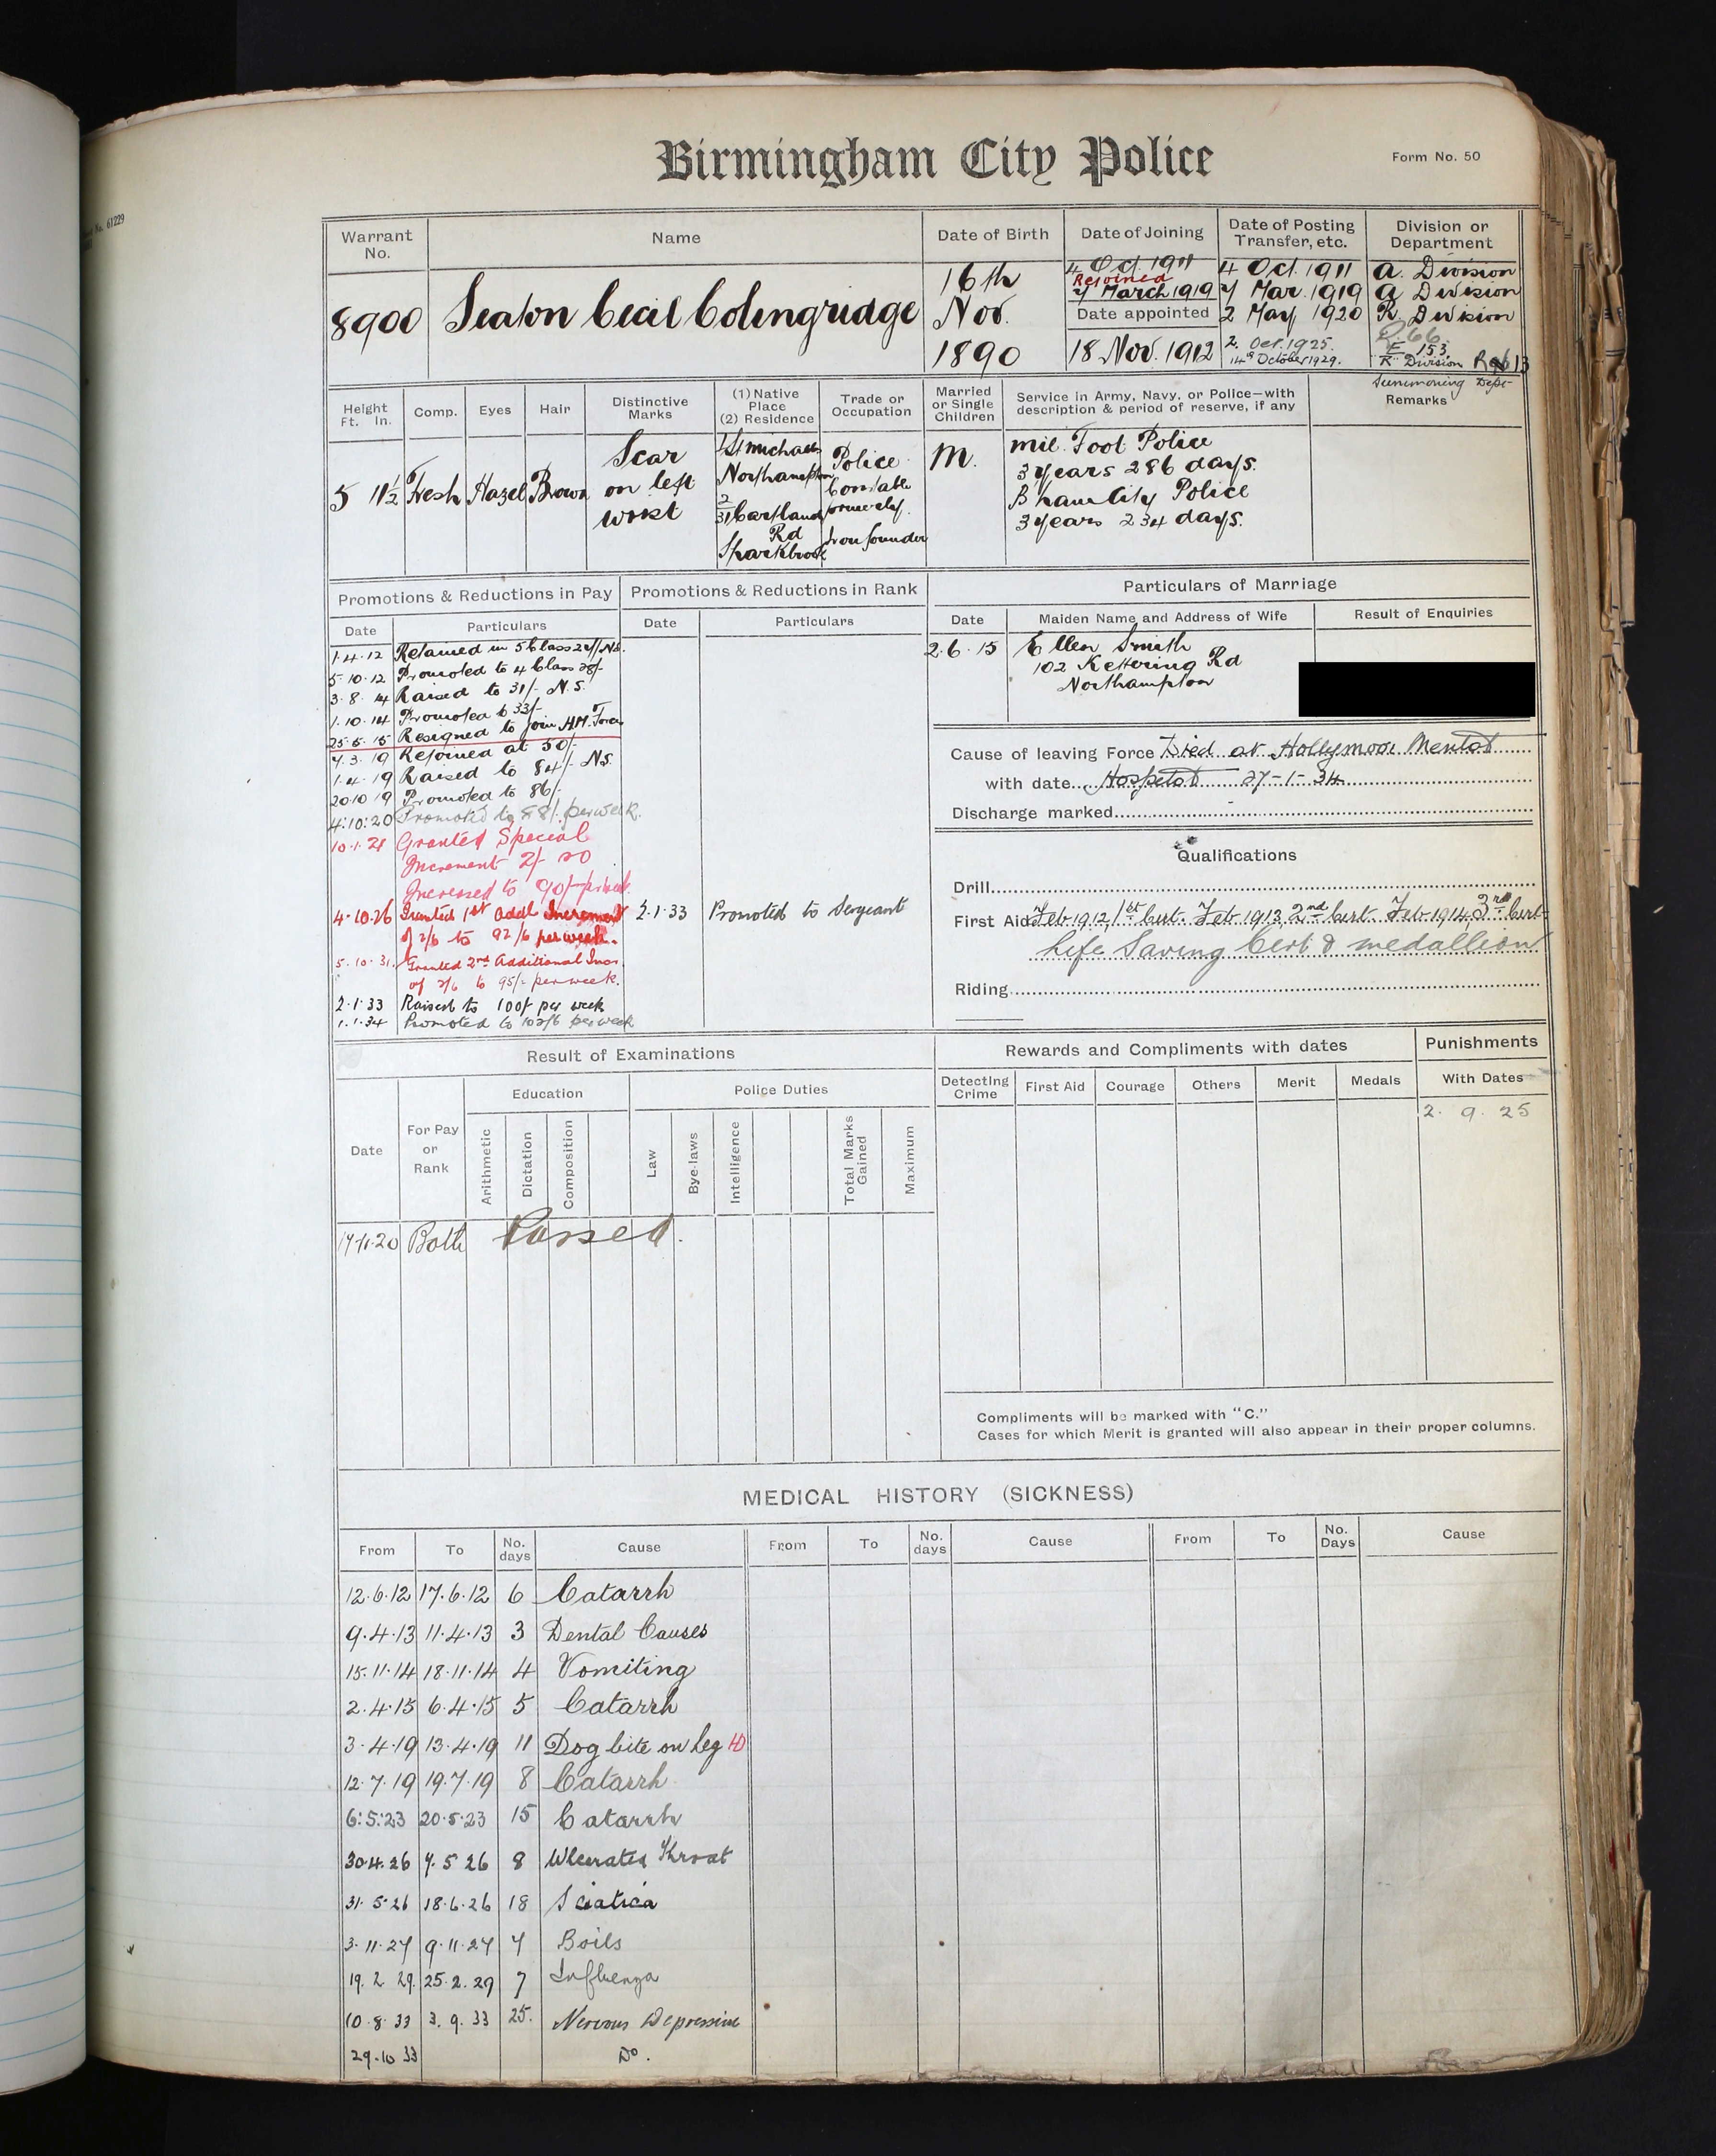 No. 61229
Birmingham City Police
Form No. 50
Warrant No.
Name
Date of Birth
Date of Joining
Date of Posting Transfer, etc.
Division or Department
8900
Seaton Cecil Colingridge
16th
Nov.
1890
4 Oct. 1911
Rejoined
7 March 1919
Date appointed
18 Nov. 1912
4 Oct. 1911 A. Division
7 Mar. 1919 A Division
2 May 1920 R. Division
2. Oct. 1925. E 153
14th October 1929. "R" Division
Summoning Dept
Height Ft. In.
Comp.
Eyes
Hair
Distinctive Marks
(1) Native Place (2) Residence
Trade or Occupation
Married or Single Children
Service in Army, Navy, or Police—with description & period of reserve, if any
Remarks
5 11½
Fresh
Hazel
Brown
Scar
on left
wrist
1 St Michaels
Northampton
2
31 Cartland
Rd
Sparkbrook
Police
Constable
formerly
Ironfounder
M.
Mil. Foot Police
3 years 286 days.
B'ham City Police
3 years 234 days.
Promotions & Reductions in Pay
Promotions & Reductions in Rank
Particulars of Marriage
Date
Particulars
Date
Particulars
Date
Maiden Name and Address of Wife
Result of Enquiries
1.4.12 Retained in 5 Class N.S.
5.10.12 Promoted to 4 Class 28/-
3.8.14 Raised to 31/- N.S.
1.10.14 Promoted to 33/-
25.5.15 Resigned to join H.M. Forces
7.3.19 Rejoined at 50/-
1.4.19 Raised to 84/- N.S.
20.10.19 Promoted to 86/-
4:10:20 Promoted to 88/- per week.
10.1.21 Granted Special
Increment 2/- so
Increased to 90/- per week.
4.10.26 Granted 1st Addl Increment
of 2/6 to 92/6 per week.
5.10.31. Granted 2nd Additional Incr.
of 2/6 to 95/- per week.
2.1.33 Raised to 100/- per week
1.1.34 Promoted to 102/6 per week
2.1.33 Promoted to Sergeant
2.6.15
Ellen Smith
102 Kettering Rd
Northampton
Cause of leaving Force Died at Hollymoor Mental
with date Hospital 27-1-34
Discharge marked
Qualifications
Drill
First Aid Feb 1912, 1st Cert. Feb 1913, 2nd Cert. Feb 1914, 3rd Cert.
Life Saving Cert & medallion
Riding
Result of Examinations
Rewards and Compliments with dates
Punishments
Date
For Pay or Rank
Education
Police Duties
Arithmetic
Dictation
Composition
Law
Bye-laws
Intelligence
Total Marks Gained
Maximum
Detecting Crime
First Aid
Courage
Others
Merit
Medals
With Dates
2. 9. 25
17.11.20 Both Passed.
Compliments will be marked with "C."
Cases for which Merit is granted will also appear in their proper columns.
MEDICAL HISTORY (SICKNESS)
From To No. days Cause From To No. days Cause From To No. Days Cause
12.6.12 17.6.12 6 Catarrh
9.4.13 11.4.13 3 Dental Causes
15.11.14 18.11.14 4 Vomiting
2.4.15 6.4.15 5 Catarrh
3.4.19 13.4.19 11 Dog bite on Leg
12.7.19 19.7.19 8 Catarrh
6:5:23 20.5.23 15 Catarrh
30.4.26 7.5.26 8 Ulcerated Throat
31.5.26 18.6.26 18 Sciatica
3.11.27 9.11.27 7 Boils
19.2.29. 25.2.29 7 Influenza
10.8.33 3.9.33 25. Nervous Depression
29.10.33 Do.